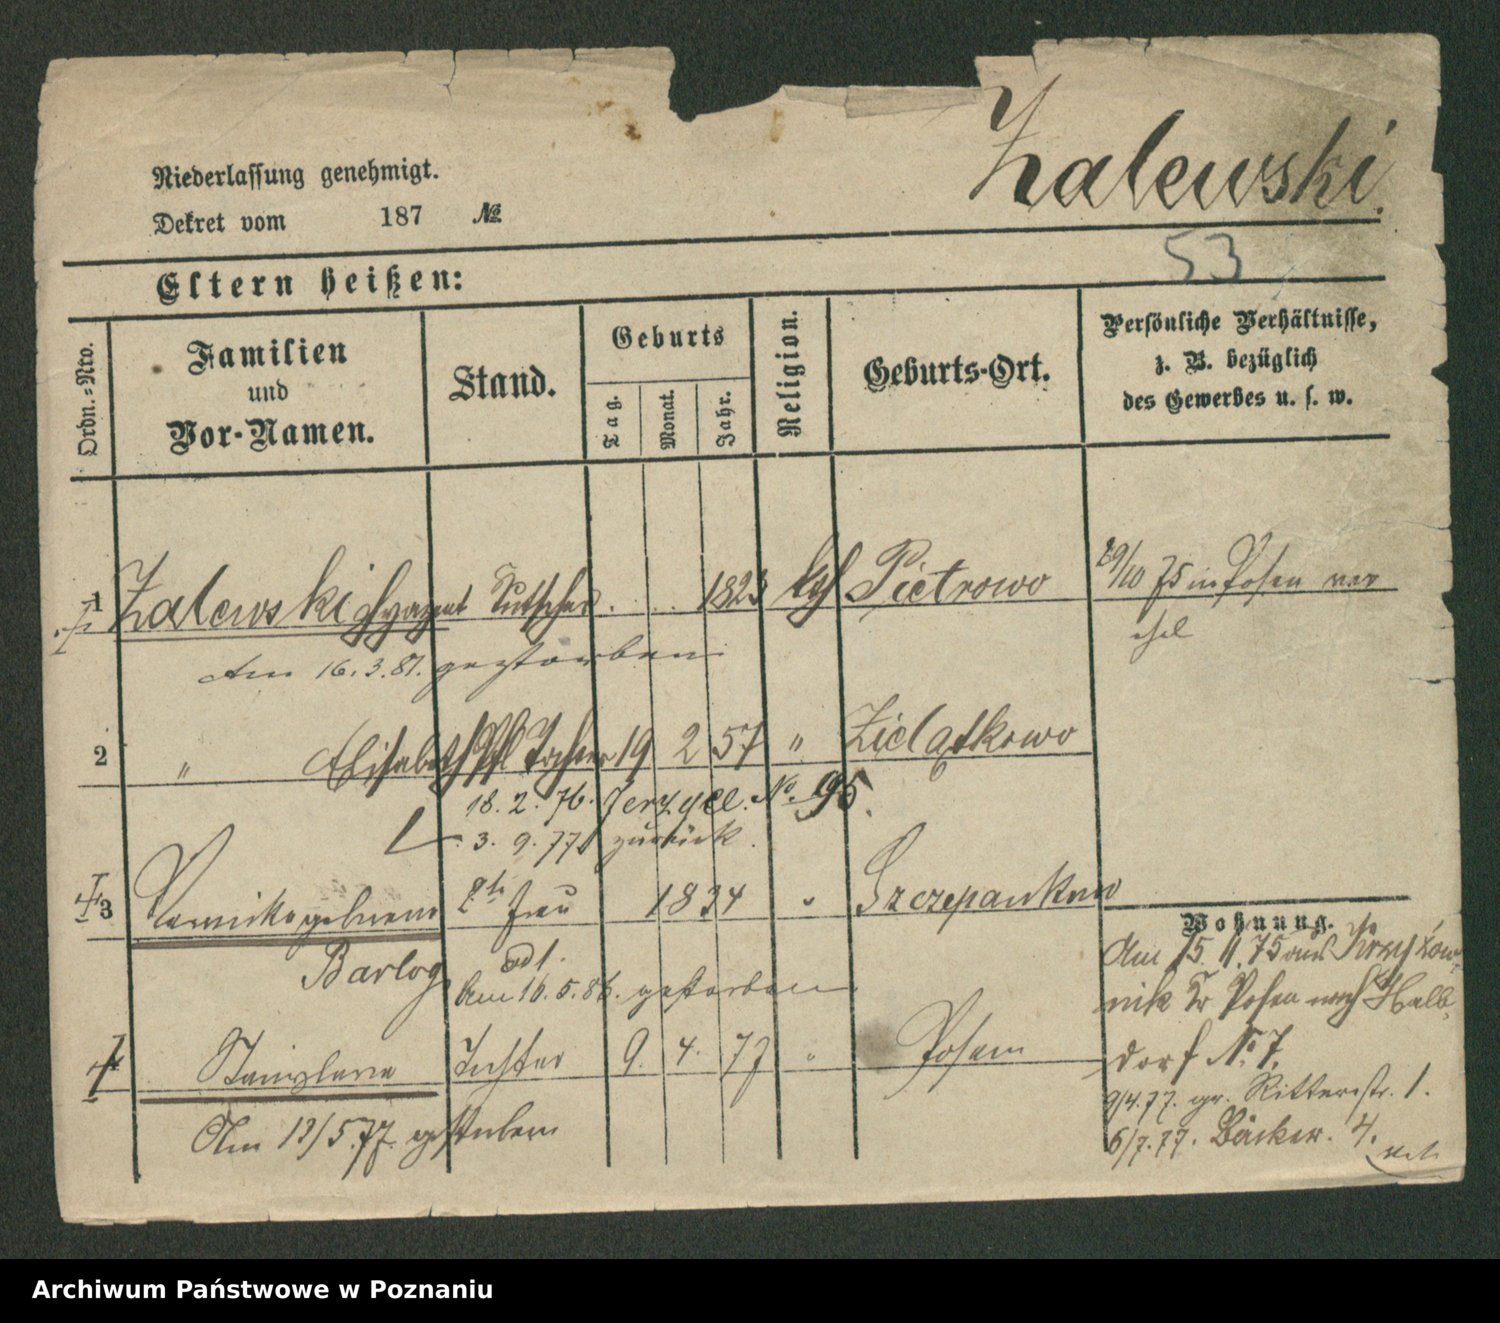 Zalewski.
Niederlassung genehmigt.
Dekret vom 187 №
53
Eltern heißen:
Ordn.-Nro.
Familien und Vor-Namen.
Stand.
Geburts
Tag.
Monat.
Jahr.
Religion.
Geburts-Ort.
Persönliche Verhältnisse,
z. B. bezüglich
des Gewerbes u. s. w.
1 Zalewski Hyazent Kutscher 1823 kgl Pietrowo 29/10 75 in Posen ver
ehel
Am 16.3.81. gestorben
2 " Elisabeth Tochter 19 2 57 " Zielątkowo
18. 2. 76. Jerzyce. No. 95.
3. 9. 77 zurück.
3 geborene Frau 1834 " Szczepankowo
Barlog
Am 16. 5. 86. gestorben
4 Stanislava Tochter 9. 4. 77 " Posen
Am 13/5.77. gestorben
Wohnung.
Am 15. 11. 75 aus
nik Kr Posen nach Halb-
dorf No 7.
9/4.77. gr. Ritterstr. 1.
6/7.77. Bäcker. 4.
Archiwum Państwowe w Poznaniu